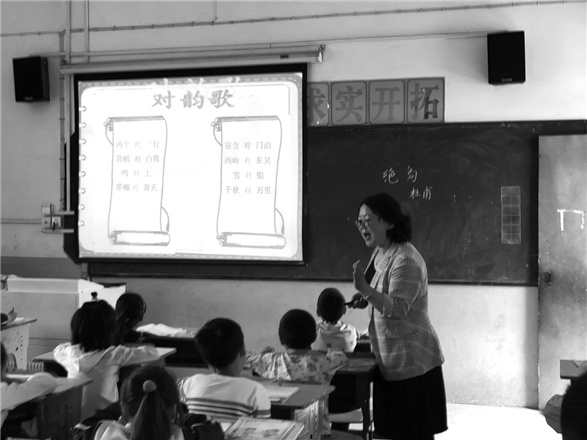 对韵歌
两个 对 一行
黄鹂 对 白鹭
鸣 对 上
翠柳 对 青天
窗含 对 门泊
西岭 对 东吴
雪 对 船
千秋 对 万里
求实开拓
绝句
杜甫